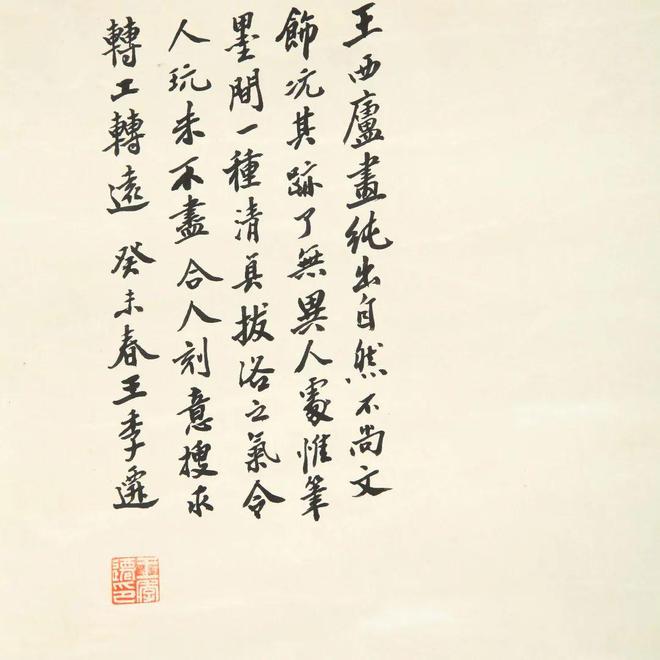 王西廬畫純出自然不尚文
飾況其跡了無異人處惟筆
墨間一種清真拔俗之氣令
人玩未不盡合人刻意搜求
轉工轉遠 癸未春王季遷
王季遷印